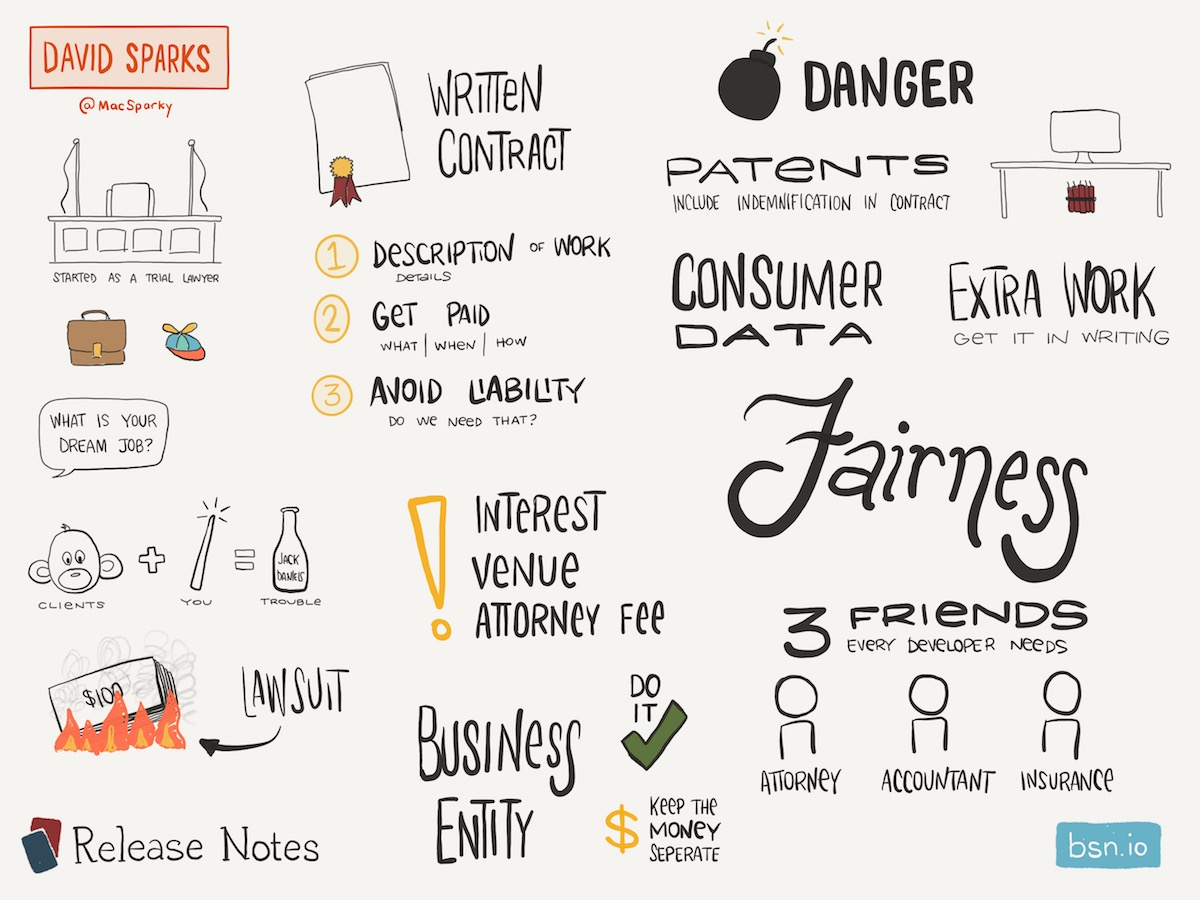 DAVID SPARKS
@MacSparky
STARTED AS A TRIAL LAWYER
WHAT IS YOUR
DREAM JOB?
CLIENTS
+
YOU
=
JACK
DANIELS
TROUBLE
$100
LAWSUIT
Release Notes
WRITTEN
CONTRACT
1 DESCRIPTION OF WORK
DETAILS
2 GET PAID
WHAT | WHEN | HOW
3 AVOID LIABILITY
DO WE NEED THAT?
!
INTEREST
VENUE
ATTORNEY FEE
BUSINESS
ENTITY
DO
IT
$
KEEP THE
MONEY
SEPERATE
DANGER
PATENTS
INCLUDE INDEMNIFICATION IN CONTRACT
CONSUMER
DATA
EXTRA WORK
GET IT IN WRITING
Fairness
3 FRIENDS
EVERY DEVELOPER NEEDS
ATTORNEY
ACCOUNTANT
INSURANCE
bsn.io